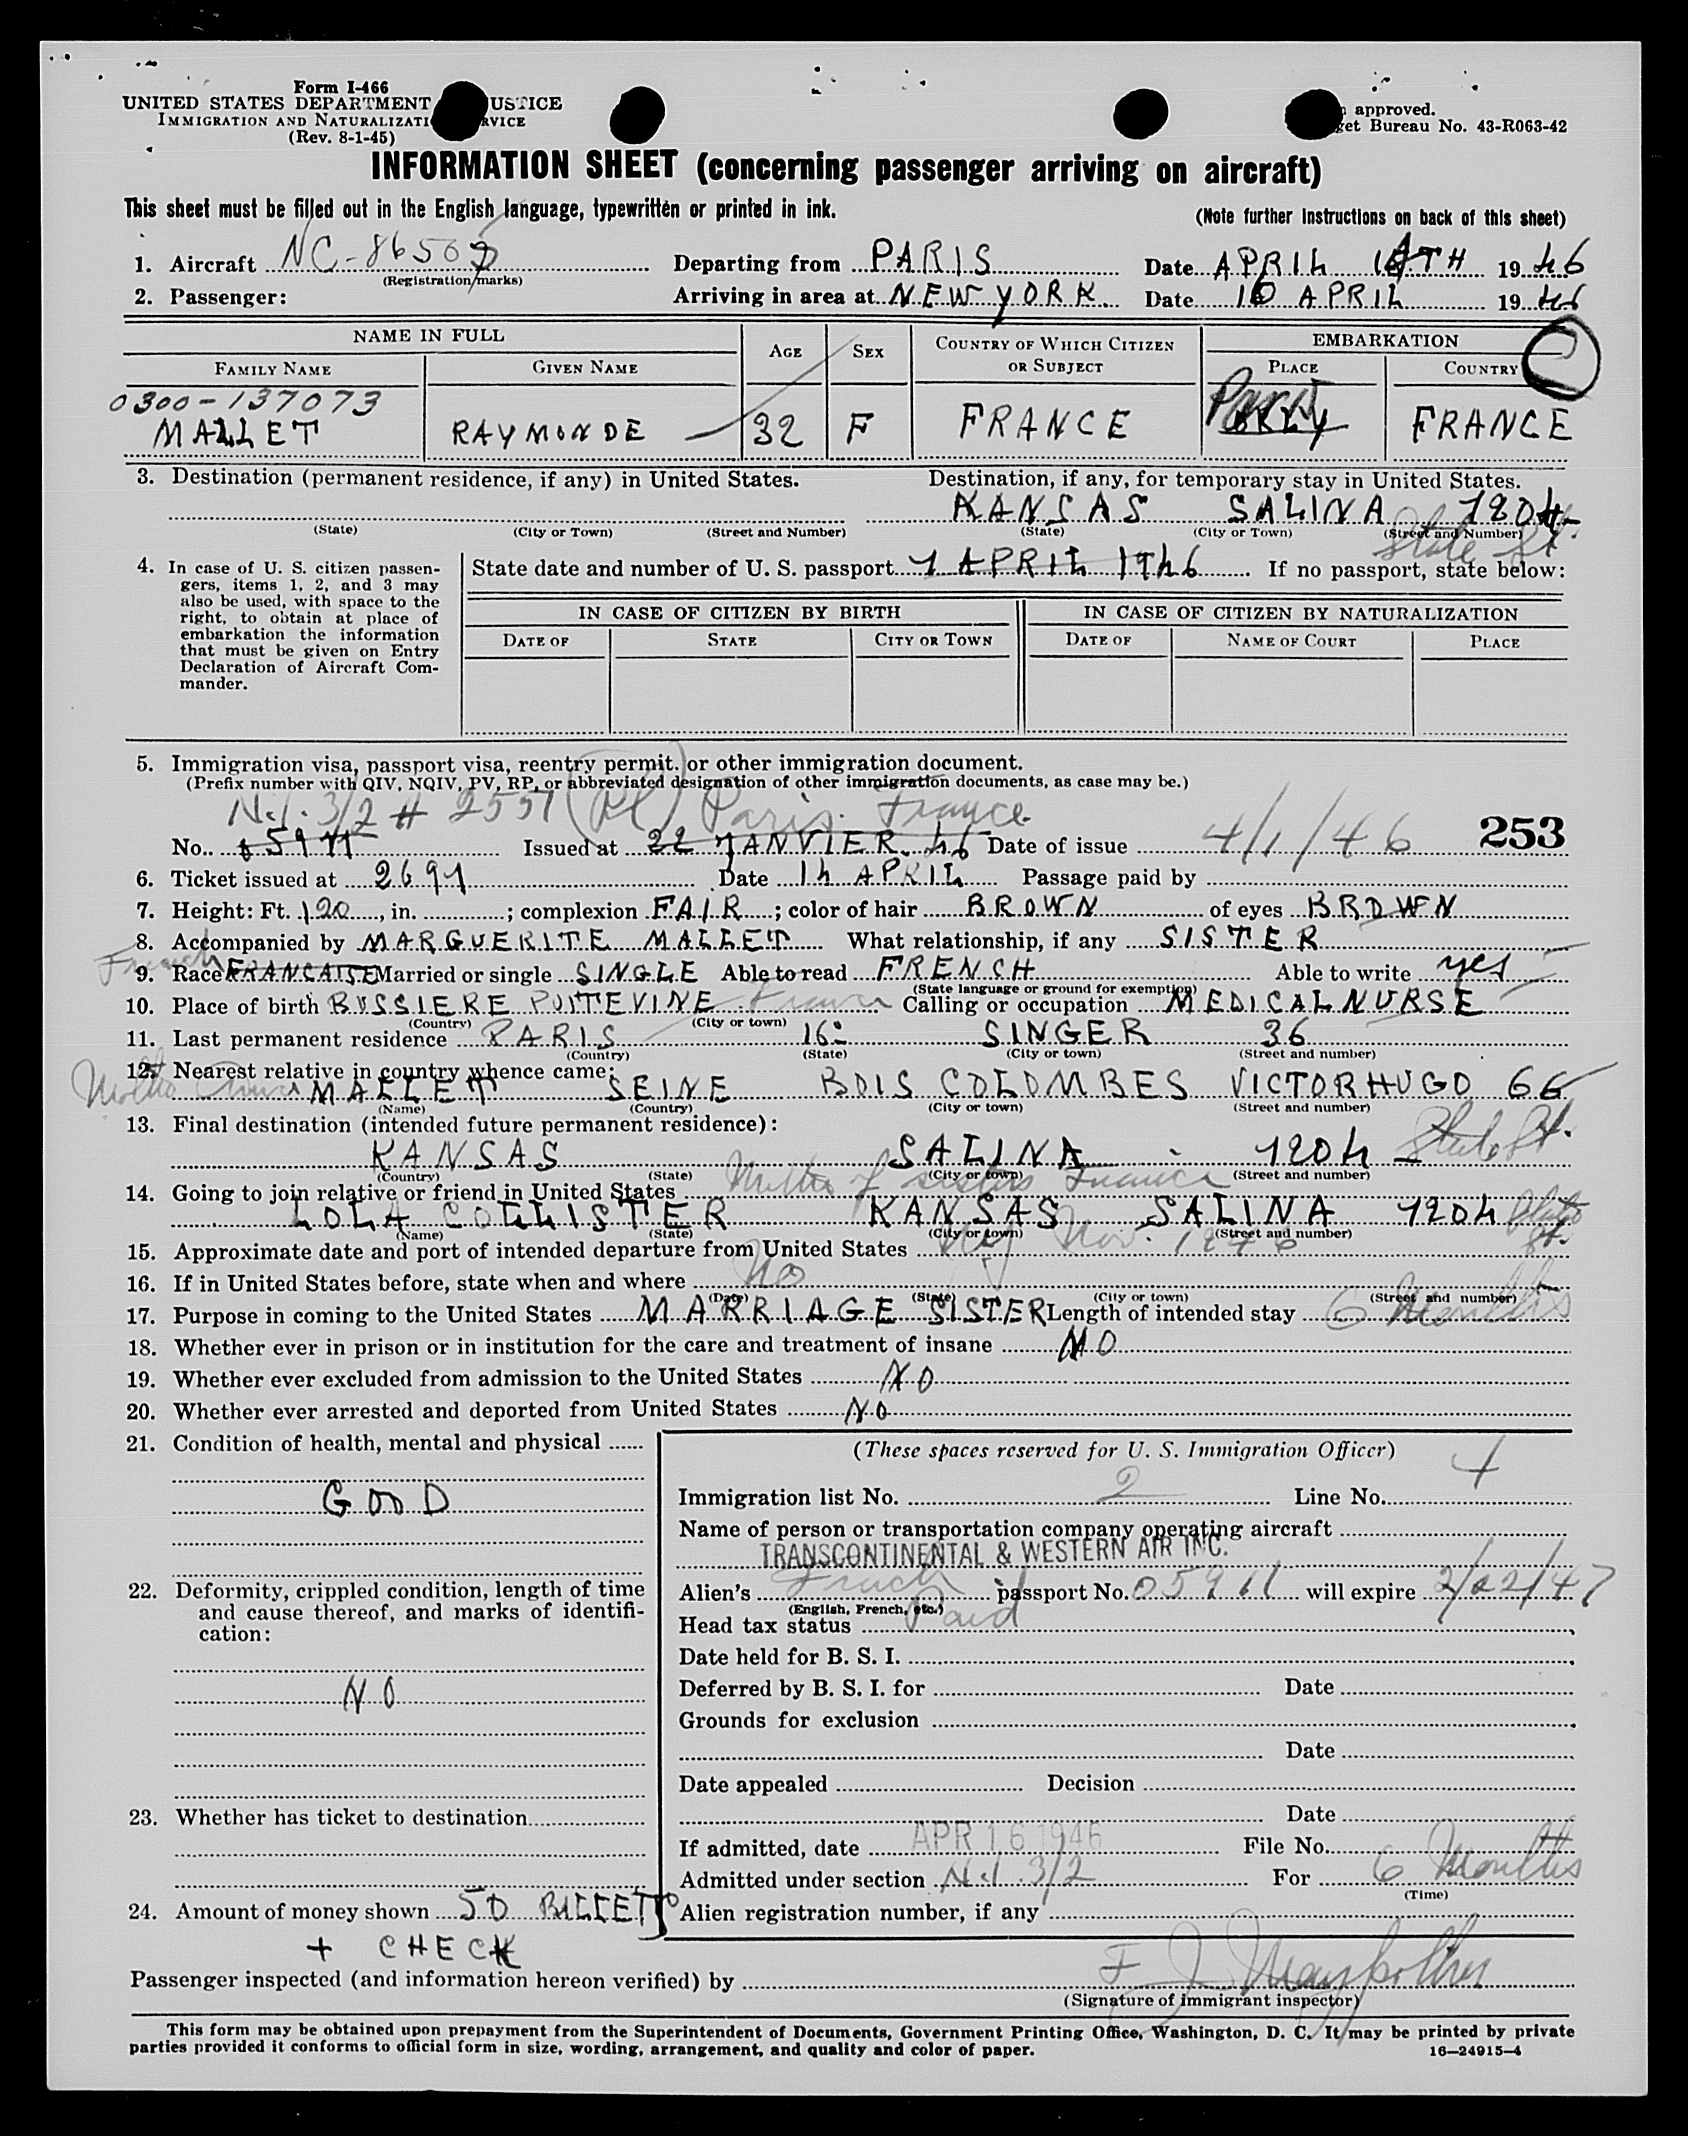 Form I-466
UNITED STATES DEPARTMENT USTICE
IMMIGRATION AND NATURALIZATI RVICE
(Rev. 8-1-45)
approved.
et Bureau No. 43-R063-42
INFORMATION SHEET (concerning passenger arriving on aircraft)
This sheet must be filled out in the English language, typewritten or printed in ink.
(Note further instructions on back of this sheet)
1. Aircraft NC-8650 Departing from PARIS Date APRIL TH 1946
(Registration marks)
2. Passenger: Arriving in area at NEW YORK Date 16 APRIL 1946
NAME IN FULL AGE SEX COUNTRY OF WHICH CITIZEN OR SUBJECT EMBARKATION
FAMILY NAME GIVEN NAME PLACE COUNTRY
0300-137073
MALLET RAYMONDE 32 F FRANCE Paris ORLY FRANCE
3. Destination (permanent residence, if any) in United States. Destination, if any, for temporary stay in United States.
KANSAS SALINA 1204
(State) (City or Town) (Street and Number) (State) (City or Town) (Street and Number)
State St.
4. In case of U. S. citizen passen-
gers, items 1, 2, and 3 may
also be used, with space to the
right, to obtain at place of
embarkation the information
that must be given on Entry
Declaration of Aircraft Com-
mander.
State date and number of U. S. passport 1 APRIL 1946 If no passport, state below:
IN CASE OF CITIZEN BY BIRTH IN CASE OF CITIZEN BY NATURALIZATION
DATE OF STATE CITY OR TOWN DATE OF NAME OF COURT PLACE
5. Immigration visa, passport visa, reentry permit, or other immigration document.
(Prefix number with QIV, NQIV, PV, RP, or abbreviated designation of other immigration documents, as case may be.)
3/2 # 2551 Paris. France
No. Issued at 22 JANVIER 46 Date of issue 4/1/46 253
6. Ticket issued at 2691 Date 14 APRIL Passage paid by
7. Height: Ft. 1.20, in. ; complexion FAIR; color of hair BROWN of eyes BROWN
8. Accompanied by MARGUERITE MALLET What relationship, if any SISTER
French
9. Race FRANCAISE Married or single SINGLE Able to read FRENCH Able to write yes
(State language or ground for exemption)
10. Place of birth BUSSIERE POITEVINE France Calling or occupation MEDICAL NURSE
(Country) (City or town)
11. Last permanent residence PARIS 16e SINGER 36
(Country) (State) (City or town) (Street and number)
12. Nearest relative in country whence came:
MALLET SEINE BOIS COLOMBES VICTOR HUGO 66
(Name) (Country) (City or town) (Street and number)
13. Final destination (intended future permanent residence):
KANSAS SALINA 1204 State St.
(Country) (State) (City or town) (Street and number)
14. Going to join relative or friend in United States Mother of sisters
LOLA COLLISTER KANSAS SALINA 1204 State St.
(Name) (State) (City or town) (Street and number)
15. Approximate date and port of intended departure from United States NY Nov. 1946
16. If in United States before, state when and where No
(Date) (State) (City or town) (Street and number)
17. Purpose in coming to the United States MARRIAGE SISTER Length of intended stay 6 Months
18. Whether ever in prison or in institution for the care and treatment of insane NO
19. Whether ever excluded from admission to the United States NO
20. Whether ever arrested and deported from United States NO
21. Condition of health, mental and physical
GOOD
22. Deformity, crippled condition, length of time
and cause thereof, and marks of identifi-
cation:
NO
23. Whether has ticket to destination
24. Amount of money shown 50
+ CHECK
(These spaces reserved for U. S. Immigration Officer)
Immigration list No. 2 Line No. 4
Name of person or transportation company operating aircraft
TRANSCONTINENTAL & WESTERN AIR INC.
Alien's French passport No. will expire 2/22/47
(English, French, etc.)
Head tax status Paid
Date held for B. S. I.
Deferred by B. S. I. for Date
Grounds for exclusion
Date
Date appealed Decision
Date
If admitted, date APR 16 1946 File No.
Admitted under section 3/2 For 6 Months
(Time)
Alien registration number, if any
Passenger inspected (and information hereon verified) by
(Signature of immigrant inspector)
This form may be obtained upon prepayment from the Superintendent of Documents, Government Printing Office, Washington, D. C. It may be printed by private
parties provided it conforms to official form in size, wording, arrangement, and quality and color of paper.
16—24915-4